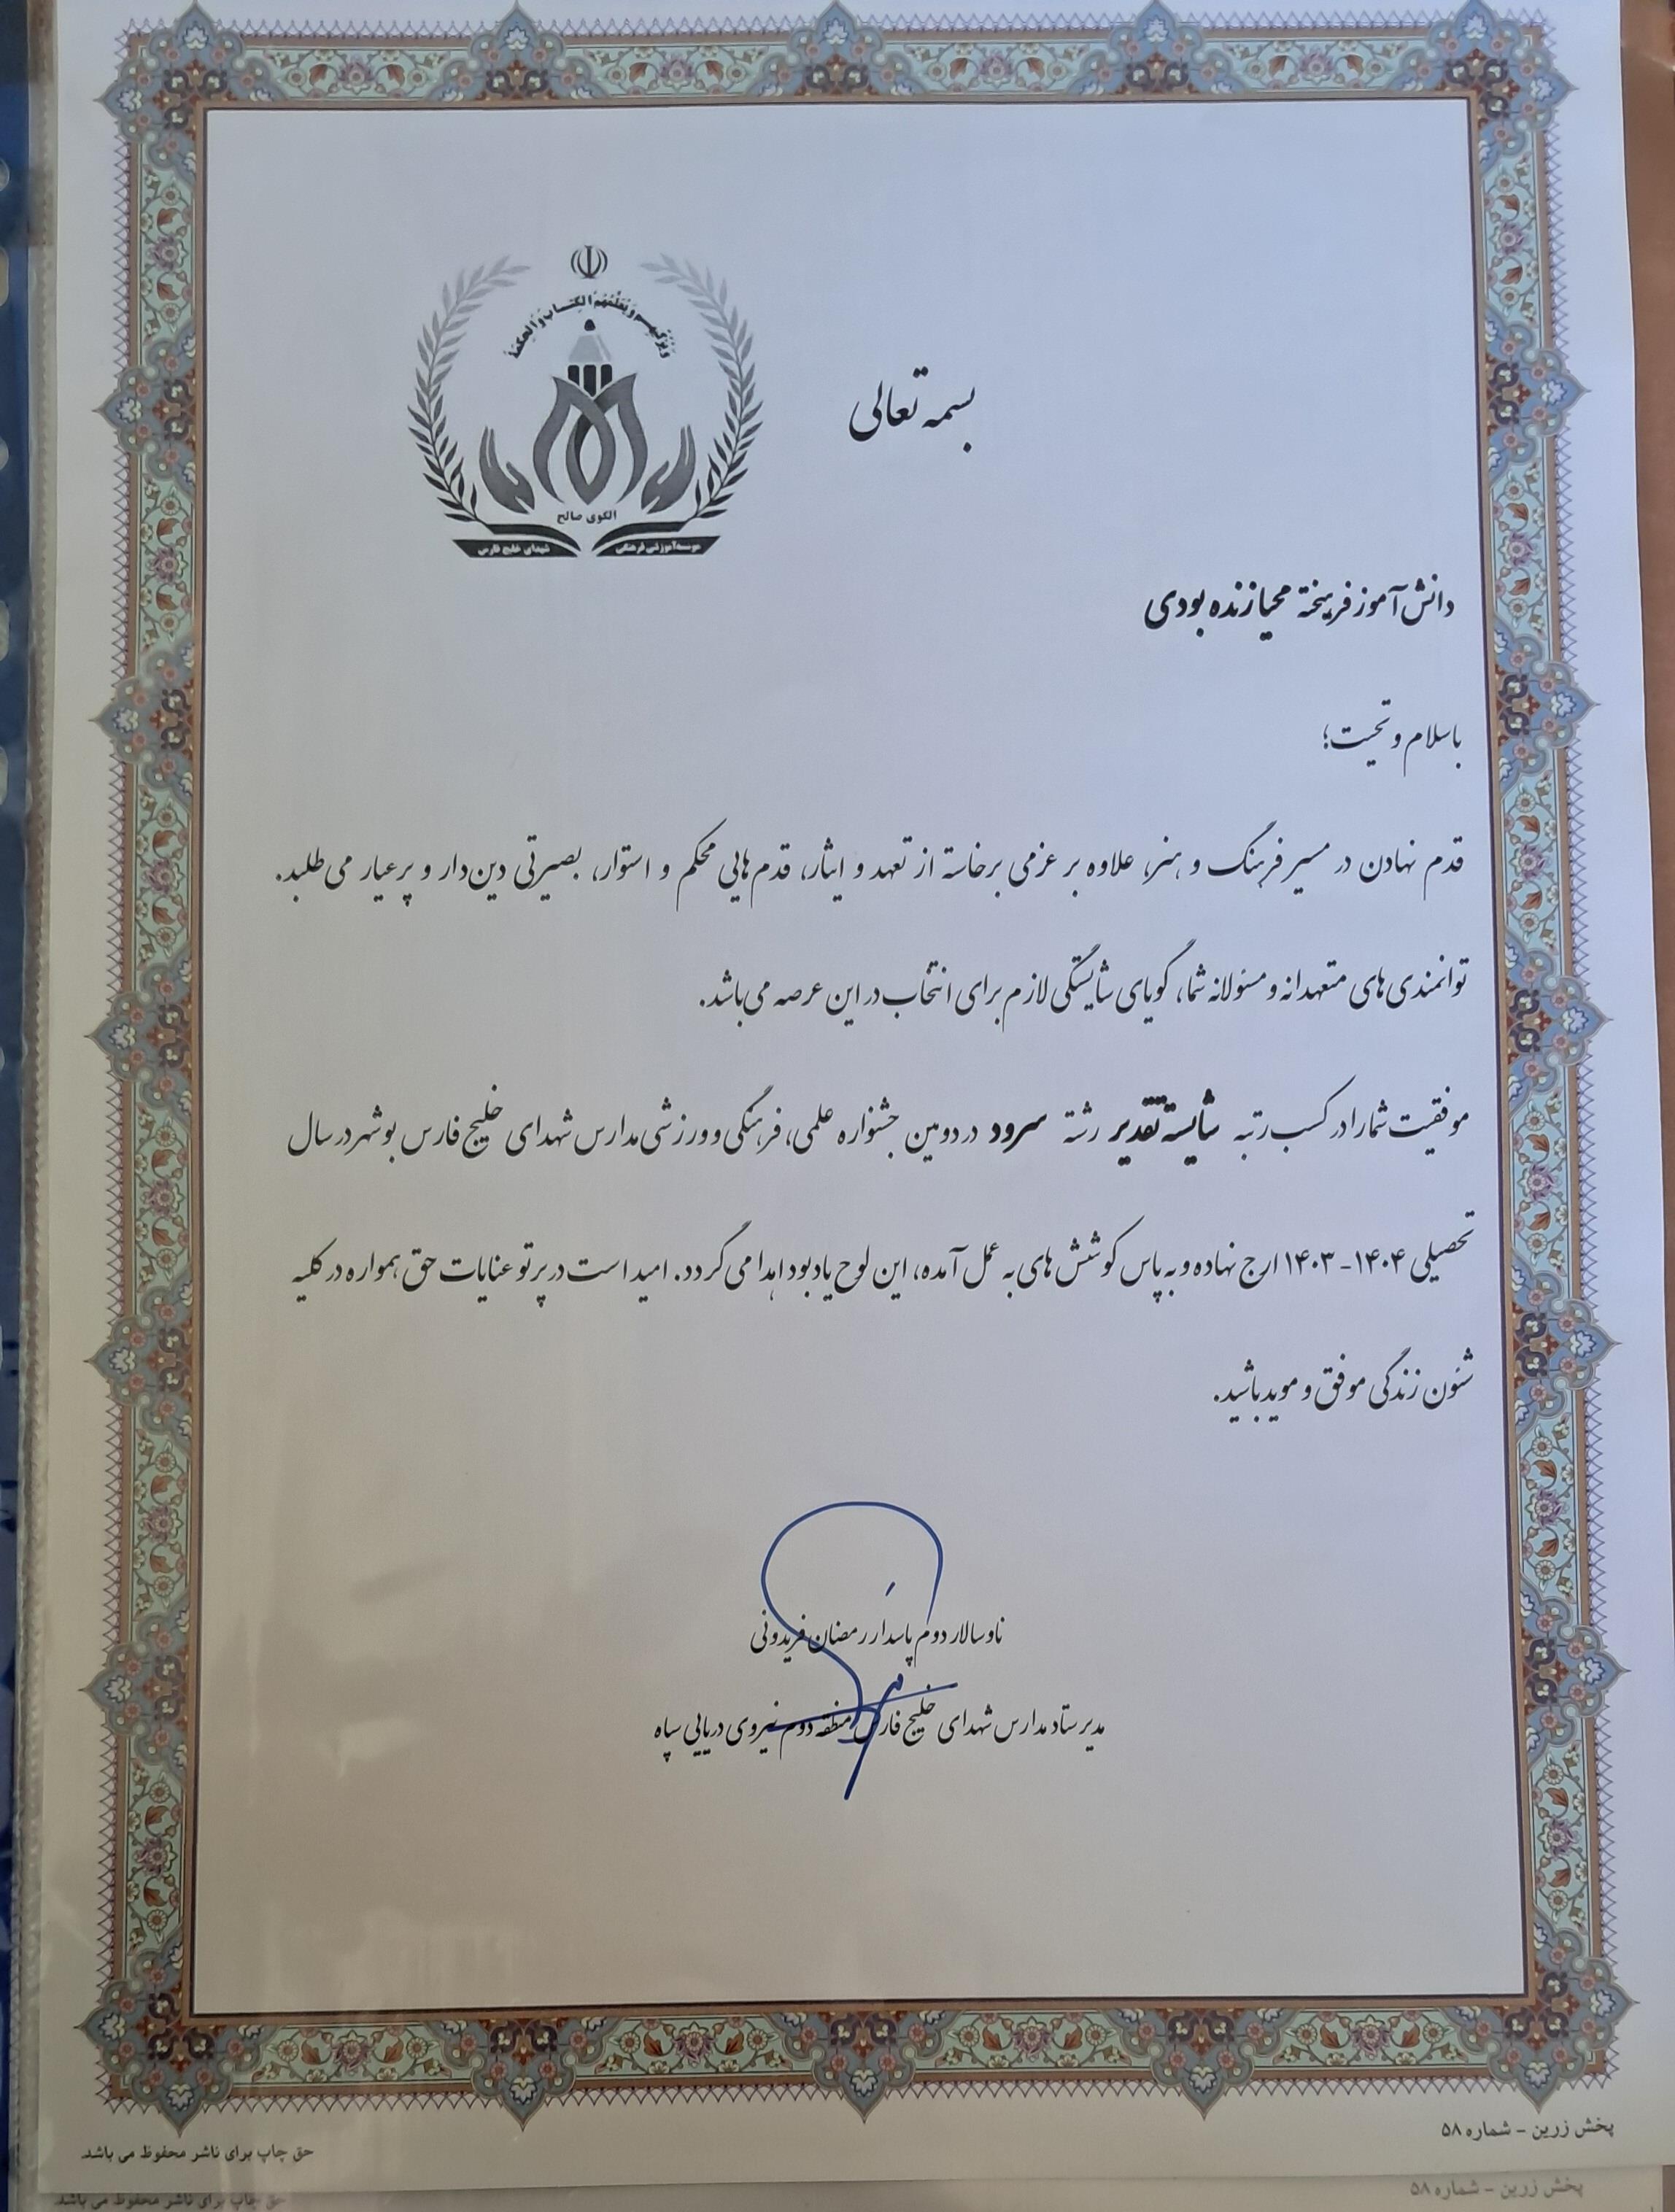 ویزکیهم و یعلمهم الکتاب والحکمة
الگوی صالح
موسسه آموزشی فرهنگی
شهدای خلیج فارس
بسمه تعالی
دانش آموز فرهیخته محیا زنده بودی
با سلام و تحیت؛
قدم نهادن در مسیر فرهنگ و هنر، علاوه بر عزمی برخاسته از تعهد و ایثار، قدم هایی محکم و استوار، بصیرتی دین دار و پرعیار می طلبد.
توانمندی های متعهدانه و مسئولانه شما، گویای شایستگی لازم برای انتخاب در این عرصه می باشد.
موفقیت شما را در کسب رتبه شایسته تقدیر رشته سرود در دومین جشنواره علمی، فرهنگی و ورزشی مدارس شهدای خلیج فارس بوشهر در سال
تحصیلی ۱۴۰۴-۱۴۰۳ ارج نهاده و به پاس کوشش های به عمل آمده، این لوح یادبود اهدا می گردد. امید است در پرتو عنایات حق همواره در کلیه
شئون زندگی موفق و موید باشید.
ناوسالار دوم پاسدار رمضان فریدونی
مدیر ستاد مدارس شهدای خلیج فارس منطقه دوم نیروی دریایی سپاه
پخش زرین - شماره ۵۸
حق چاپ برای ناشر محفوظ می باشد.
پخش زرین - شماره ۵۸
حق چاپ برای ناشر محفوظ می باشد.